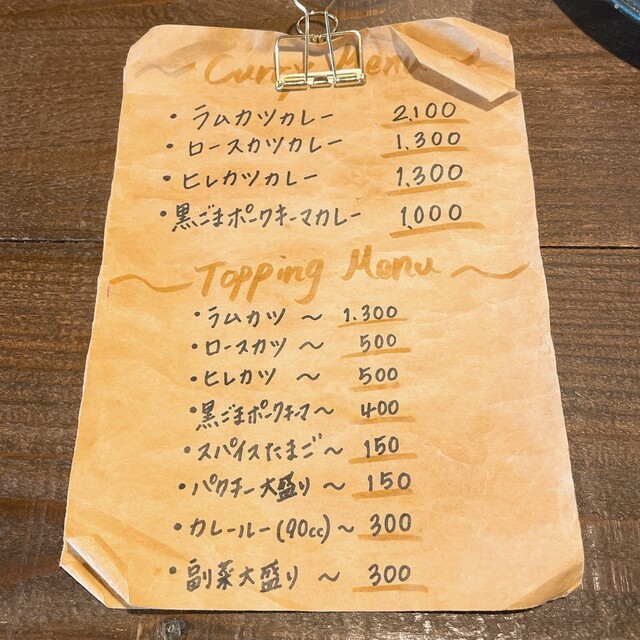 ～ Curry Menu
・ラムカツカレー 2,100
・ロースカツカレー 1,300
・ヒレカツカレー 1,300
・黒ごまポークキーマカレー 1,000
～ Topping Menu ～
・ラムカツ ～ 1,300
・ロースカツ ～ 500
・ヒレカツ ～ 500
・黒ごまポークキーマ～ 400
・スパイスたまご～ 150
・パクチー大盛り～ 150
・カレールー(90cc)～ 300
・副菜大盛り ～ 300